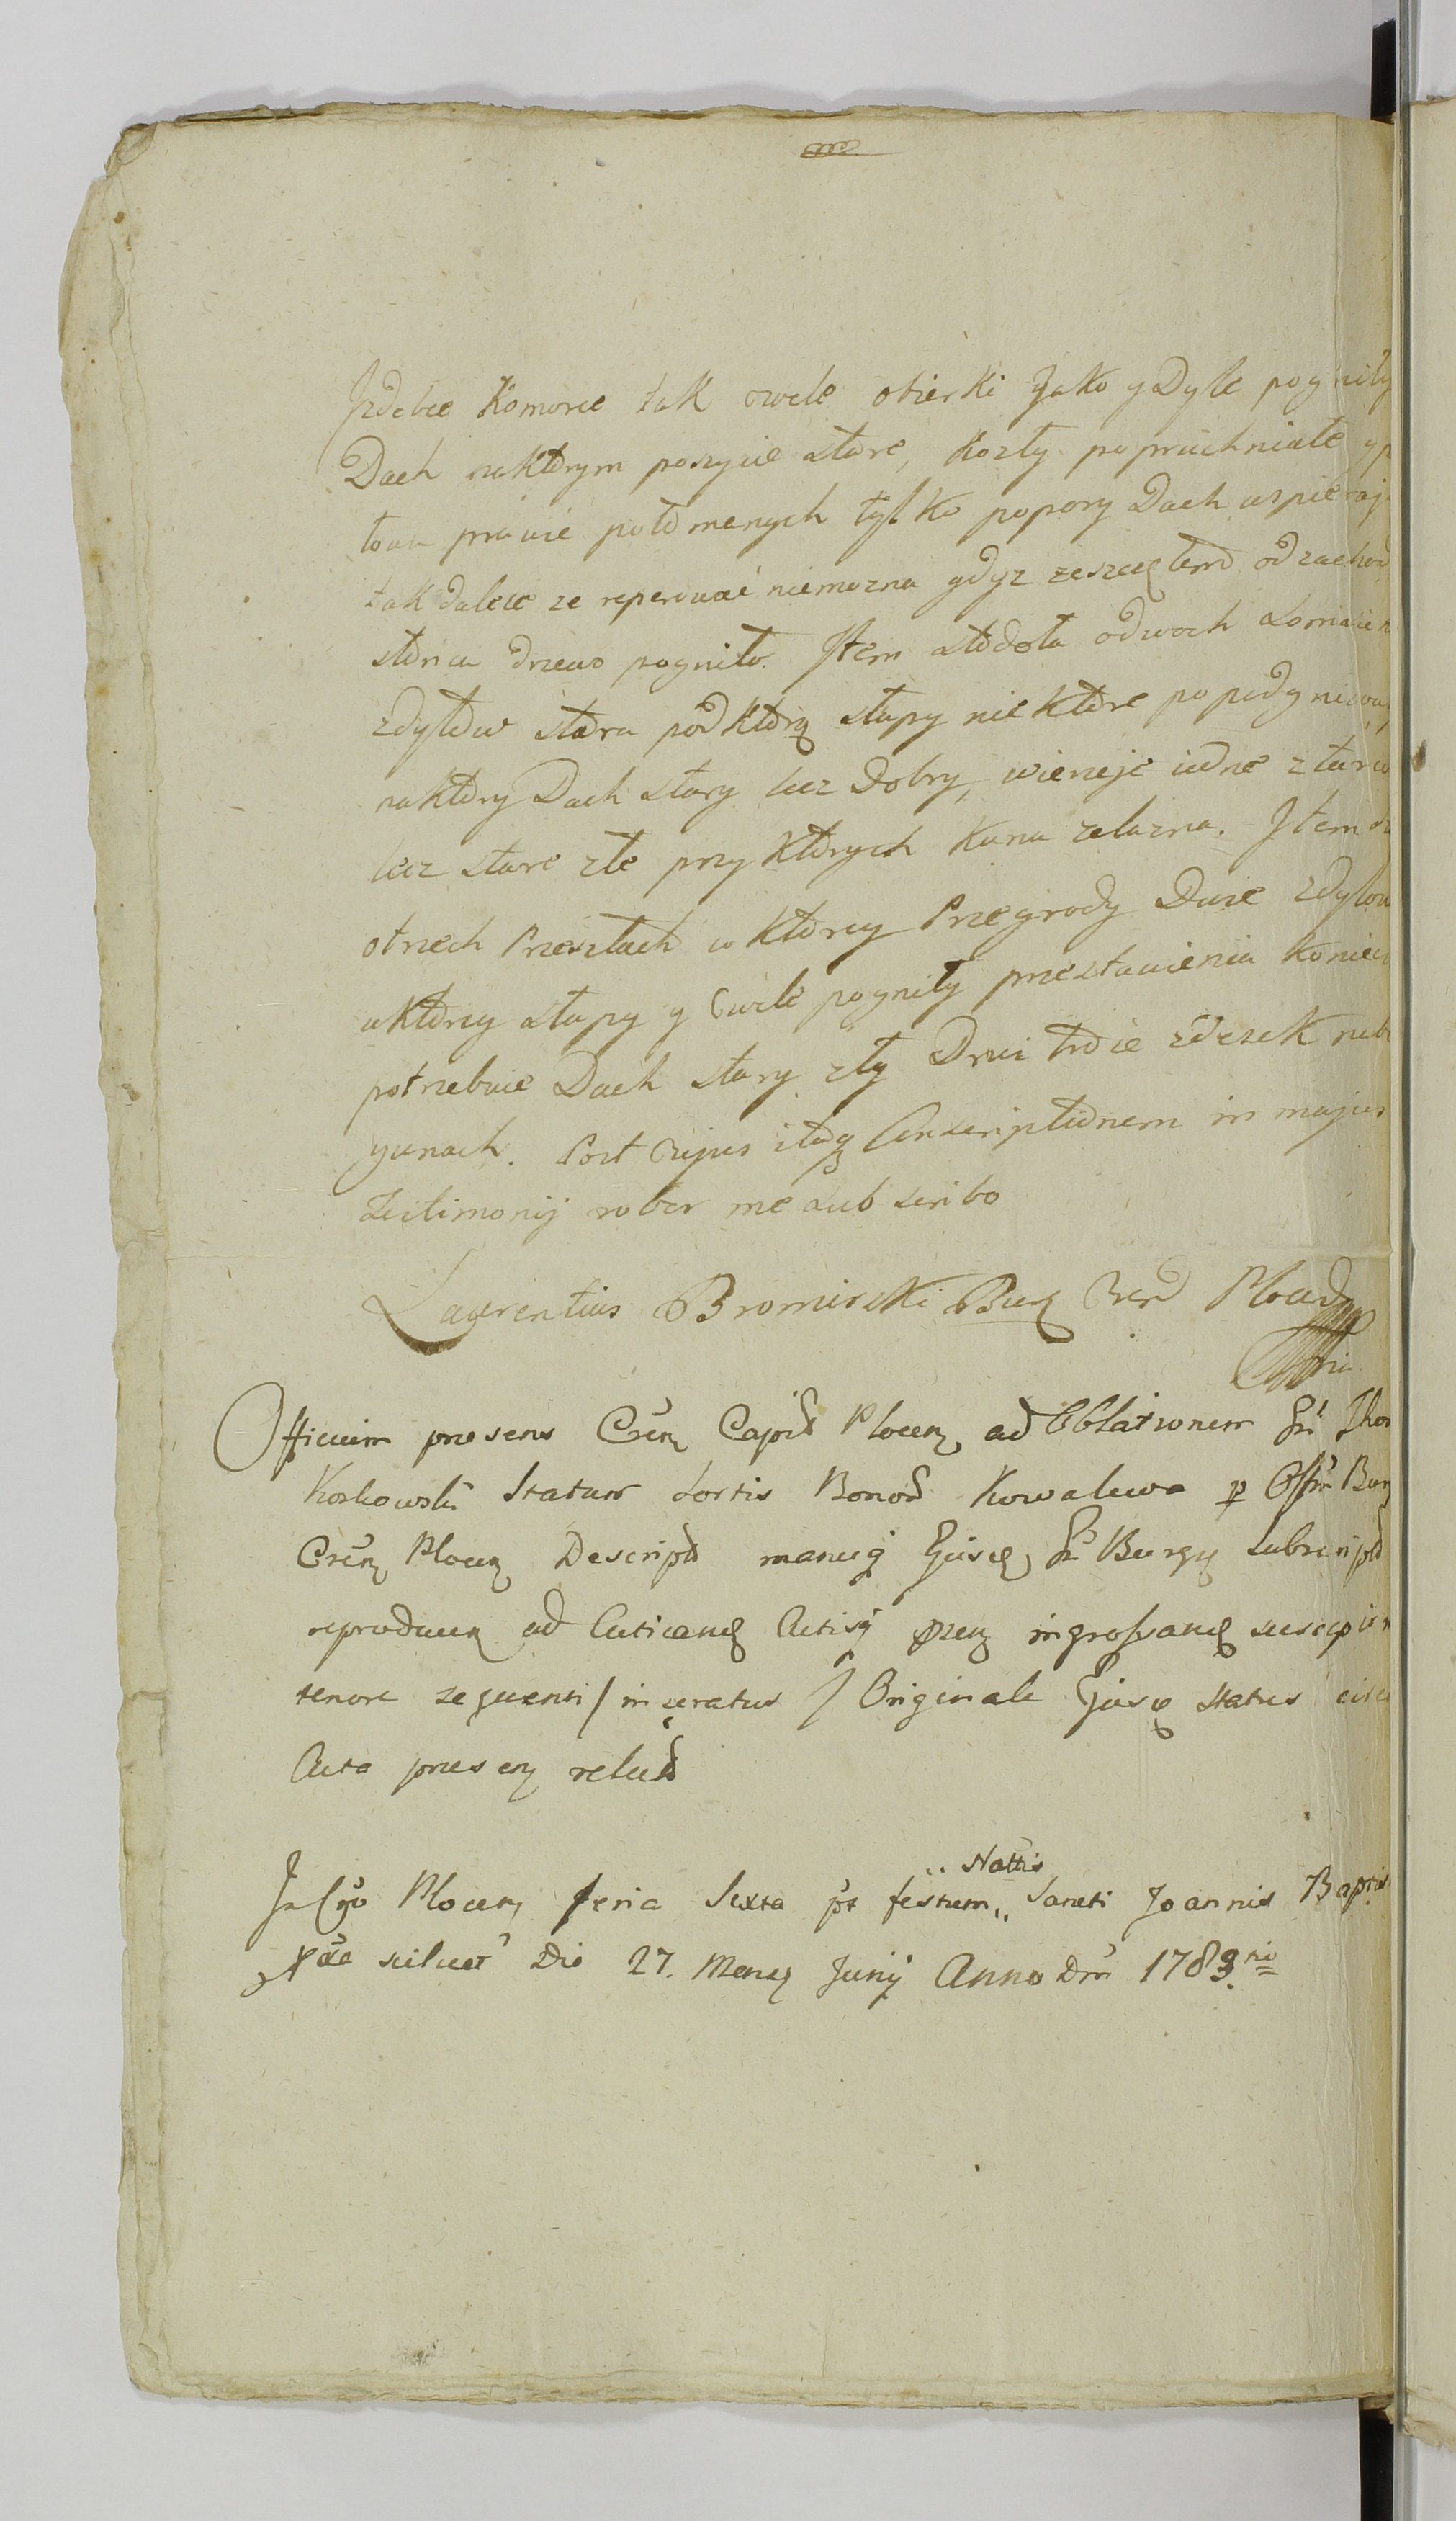 Jzdebce Komorce tak owcle obierki Jako y Dyle pogniły
Dach naktorym poszycie stare, Kozły poprochniałe y
prawie połomanych tylko popory Dach wspieraj
tak dalece ze reperować niemozna gdyz zeszczętem od zachod
słońca drzewo pogniło. Jtem stodoła odwoch
zdylów stara pod ktorą słupy niektóre popodgniwa
naktory Dach stary lecz Dobry, wierzeje iedne ztarcic
lecz stare złe przy ktorych Kuna zelazna. Jtem
otrzech Przesłach w ktorey Przegrody Dwie zdylow
uktorey słupy y Cwele pogniły przestawienia koniecz
potrzebuie Dach stary zły Drzwi troie zdesek nab
gunach. Post Cujus itaq Conscriptionem in majus
testimonij robor me subscribo
Laurentius Bromirski Burg Cren Plocen
Officium praesens Cren Capit Plocen ad Oblationem Gsi Tho
Koskowski Statum Sortis Bonor Kowalewo p Offm Burg
Cren Plocen Descript manuq Ejusd Gsi Burgij subscript
reproducen ad Acticand Actisq pzen ingrossand suscepit
tenore sequenti / inseratur / Originale Ejusd status circa
Acta praesen relict
In Cro Plocen feria Sexta pt festum Nattis Sancti Joannis Baptis
scilicet Die 27. Mensis Junij Anno Dni 1783tio